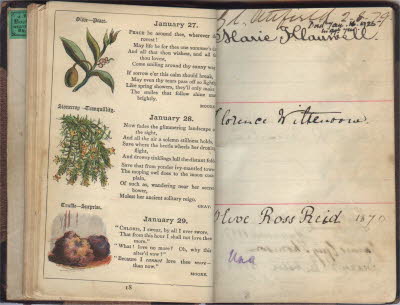 Olive—Peace.
January 27.
PEACE be around thee, wherever
rovest!
May life be for thee one summer's
And all that thou wishes, and all
thou lovest,
Come smiling around thy sunny way
If sorrow e'er this calm should break,
May even thy tears pass off so lightly
Like spring showers, they'll only make
The smiles that follow shine
brightly.
MOORE
Stonecrop—Tranquillity.
January 28.
Now fades the glimmering landscape
the sight,
And all the air a solemn stillness holds,
Save where the beetle wheels her droning
flight,
And drowsy tinklings lull the distant folds
Save that from yonder ivy-mantled tower
The moping owl does to the moon
plain,
Of such as, wandering near her secret
bower,
Molest her ancient solitary reign.
GRAY.
Truffle—Surprise.
January 29.
"COLONEL, I swear, by all I ever swore,
That from this hour I shall not love thee
more."
"What! love no more? Oh, why this
alter'd vow?"
"Because I cannot love thee more—
than now."
MOORE
18
2.6.79
Marie
Florence Wittenoom.
Olive Ross Reid 1870
Una